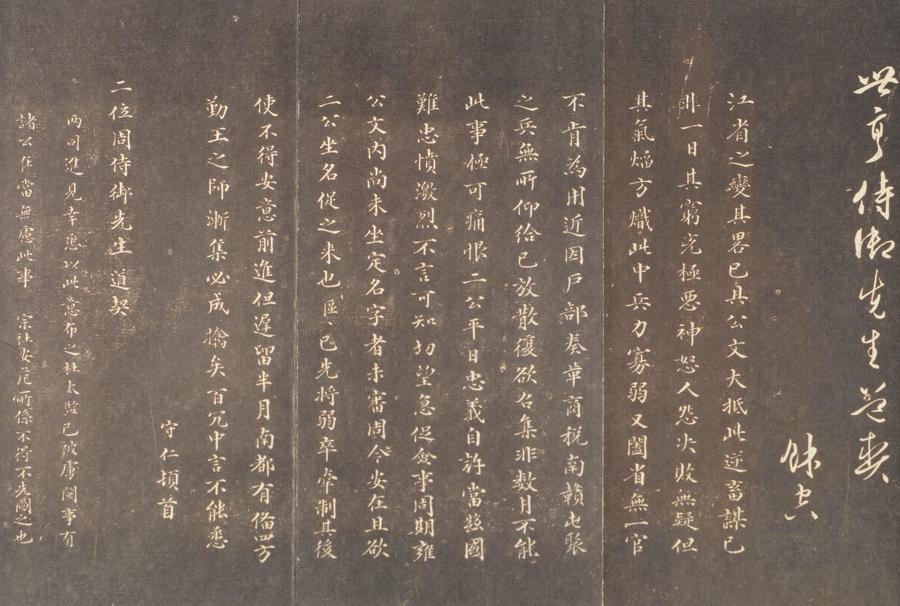 侍御先生道契
餘空
江省之變其畧已具公文大抵此逆畜謀已
非一日其窮兇極惡神怒人怨決敗無疑但
其氣焰方熾此中兵力寡弱又闔省無一官
不肯為用近因戶部奏革商稅南贛屯聚
之兵無所仰給已放散復欲召集非數月不能
此事極可痛恨二公平日忠義自許當茲國
難忠憤激烈不言可知切望急促僉事周期雍
公文內尚未坐定名字者未審周今安在且欲
二公坐名促之来也區、已先將弱卒牽制其後
使不得安意前進但遲留半月南都有備四方
勤王之師漸集必成擒矣百冗中言不能悉
守仁頓首
二位周侍御先生道契
兩司進見幸悉以此意布之杜太監已被虜閩事有
諸公在當無慮此事 宗社安危所係不得不先圖之也